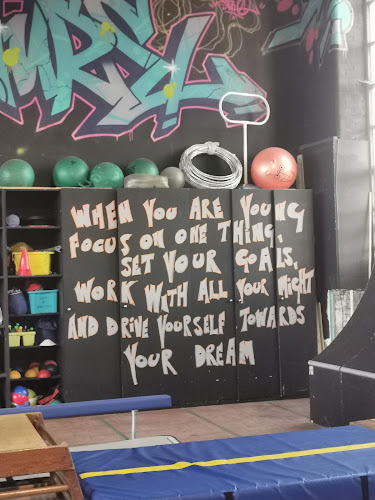 WHEN YOU ARE YOUNG
FOCUS ON ONE THING,
SET YOUR GOALS,
WORK WITH ALL YOUR MIGHT
AND DRIVE YOURSELF TOWARDS
YOUR DREAM